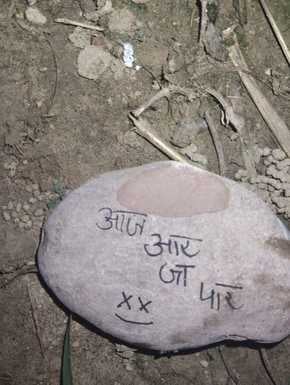 आज
आर
जा
पार
xx